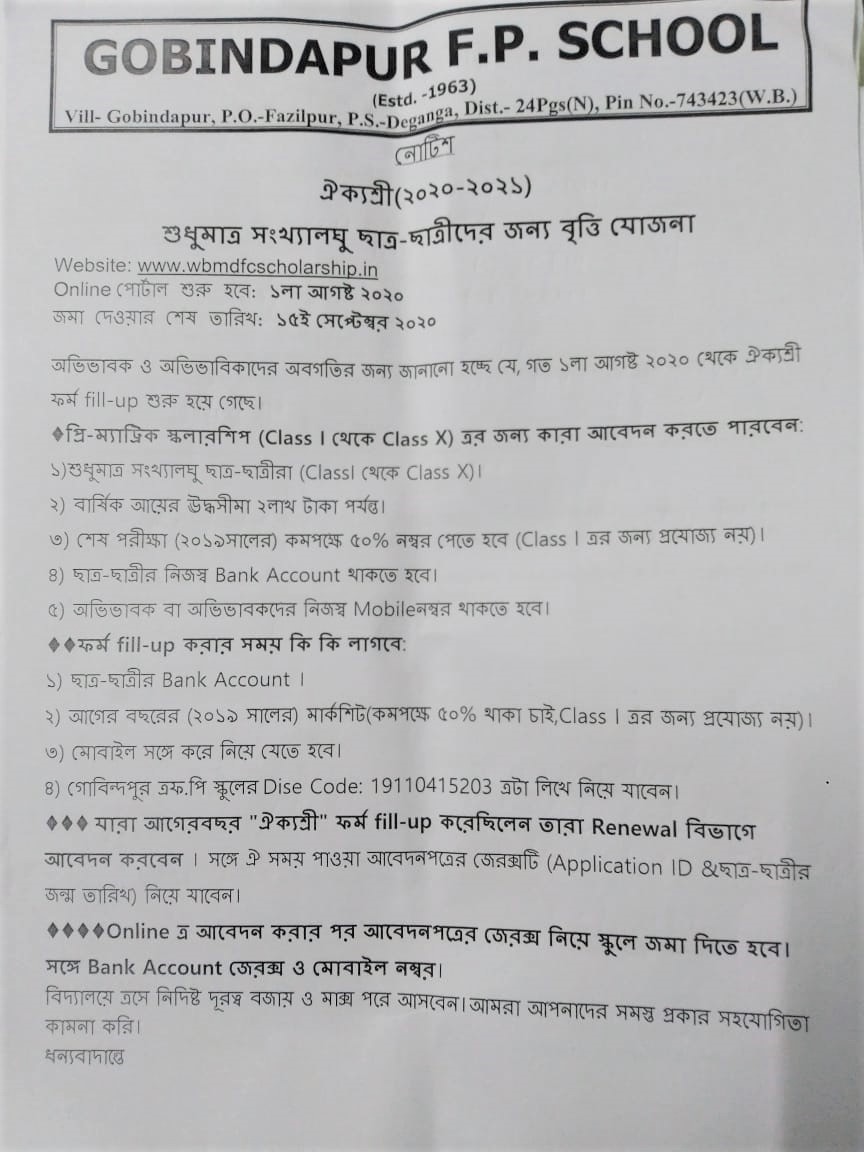 GOBINDAPUR F.P. SCHOOL
(Estd. -1963)
Vill- Gobindapur, P.O.-Fazilpur, P.S.-Deganga, Dist.- 24Pgs(N), Pin No.-743423(W.B.)
নোটিশ
ঐক্যশ্রী(২০২০-২০২১)
শুধুমাত্র সংখ্যালঘু ছাত্র-ছাত্রীদের জন্য বৃত্তি যোজনা
Website: www.wbmdfcscholarship.in
Online পোর্টাল শুরু হবে: ১লা আগষ্ট ২০২০
জমা দেওয়ার শেষ তারিখ: ১৫ই সেপ্টেম্বর ২০২০
অভিভাবক ও অভিভাবিকাদের অবগতির জন্য জানানো হচ্ছে যে, গত ১লা আগষ্ট ২০২০ থেকে ঐক্যশ্রী
ফর্ম fill-up শুরু হয়ে গেছে।
♦প্রি-ম্যাট্রিক স্কলারশিপ (Class I থেকে Class X) এর জন্য কারা আবেদন করতে পারবেন:
১)শুধুমাত্র সংখ্যালঘু ছাত্র-ছাত্রীরা (ClassI থেকে Class X)।
২) বার্ষিক আয়ের উদ্ধসীমা ২লাখ টাকা পর্যন্ত।
৩) শেষ পরীক্ষা (২০১৯সালের) কমপক্ষে ৫০% নম্বর পেতে হবে (Class I এর জন্য প্রযোজ্য নয়)।
৪) ছাত্র-ছাত্রীর নিজস্ব Bank Account থাকতে হবে।
৫) অভিভাবক বা অভিভাবকদের নিজস্ব Mobileনম্বর থাকতে হবে।
♦♦ফর্ম fill-up করার সময় কি কি লাগবে:
১) ছাত্র-ছাত্রীর Bank Account ।
২) আগের বছরের (২০১৯ সালের) মার্কশিট(কমপক্ষে ৫০% থাকা চাই,Class I এর জন্য প্রযোজ্য নয়)।
৩) মোবাইল সঙ্গে করে নিয়ে যেতে হবে।
৪) গোবিন্দপুর এফ.পি স্কুলের Dise Code: 19110415203 এটা লিখে নিয়ে যাবেন।
♦♦♦ যারা আগেরবছর "ঐক্যশ্রী" ফর্ম fill-up করেছিলেন তারা Renewal বিভাগে
আবেদন করবেন । সঙ্গে ঐ সময় পাওয়া আবেদনপত্রের জেরক্সটি (Application ID &ছাত্র-ছাত্রীর
জন্ম তারিখ) নিয়ে যাবেন।
♦♦♦♦Online এ আবেদন করার পর আবেদনপত্রের জেরক্স নিয়ে স্কুলে জমা দিতে হবে।
সঙ্গে Bank Account জেরক্স ও মোবাইল নম্বর।
বিদ্যালয়ে এসে নিদিষ্ট দূরত্ব বজায় ও মাক্স পরে আসবেন।আমরা আপনাদের সমস্ত প্রকার সহযোগিতা
কামনা করি।
ধন্যবাদান্তে